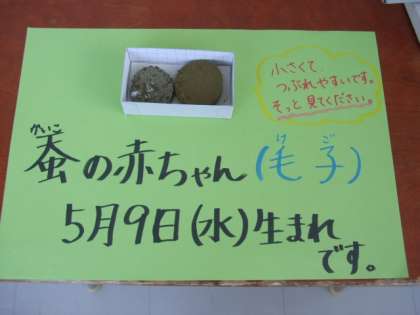 小さくて
つぶれやすいです。
そっと見てください。
かいこ
蚕の赤ちゃん(毛子)
け ご
5月9日(水)生まれ
です。